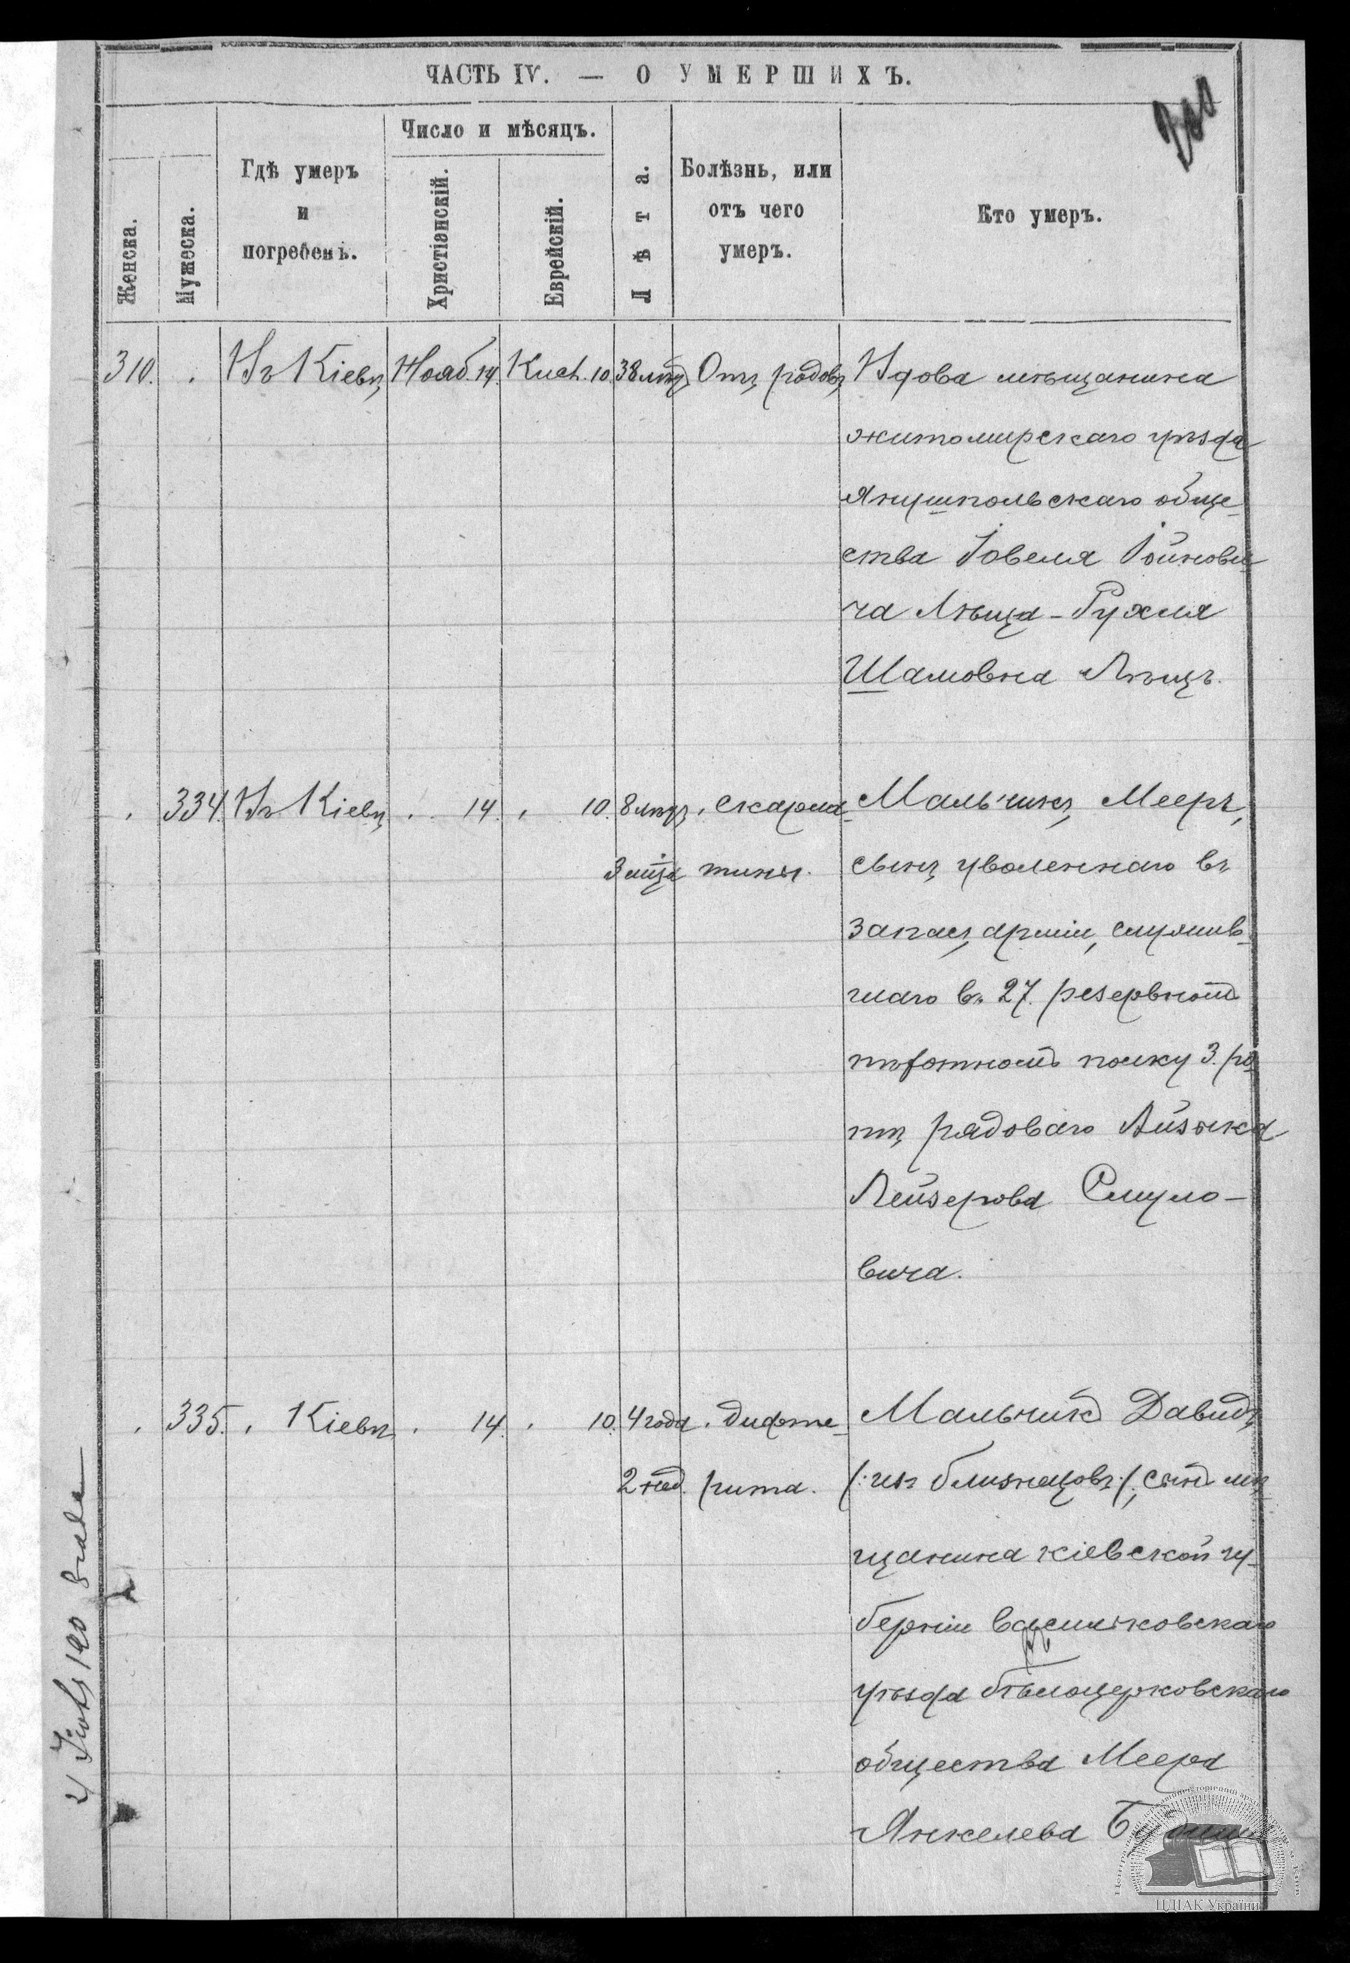 ЧАСТЬ IV. — О УМЕРШИХЪ.
Женска.
Мужеска.
Гдѣ умеръ
и
погребенъ.
Число и мѣсяцъ.
Христіанскій.
Еврейскій.
Лѣта.
Болѣзнь, или
отъ чего
умеръ.
Кто умеръ.
310. Въ Кіевѣ Нояб. 14 Кисл. 10 38 лѣтъ Отъ родовъ Вдова мѣщанина
житомирскаго уѣзда
Янушпольскаго обще-
ства Іовеля Іойнови
ча Лѣща - Рухля
Шамовна Лѣщъ.
334. Въ Кіевѣ 14. 10. 8 лѣтъ, скарла- Мальчикъ Мееръ,
3 мѣся тины. сынъ уволеннаго въ
запасъ арміи, служив-
шаго въ 27. резервномъ
пѣхотномъ полку 3. ро
тѣ рядоваго Айзика
Лейзерова Смуло-
вича.
335. Кіевѣ 14. 10. 4 года, дифте- Мальчикъ Давидъ
2 нед. рита. /:изъ близнецовъ:/, сынъ мѣ
щанина кіевской гу-
берніи васильковскаго
уѣзда бѣлоцерковскаго
общества Меера
Янкелева
ЦДІАК України